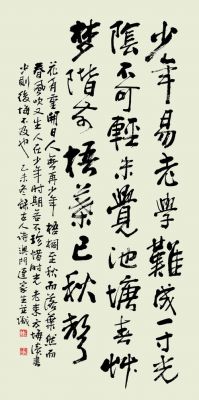 少年易老學難成一寸光
陰不可輕未覺池塘春艸
梦階前梧葉已秋聲
花有重開日人無再少年 梧桐至秋而落葉然而
春風吹又生人在少年时期若不珍惜时光老来方悔读书
少則後悔不及也 乙未冬錄古人诗